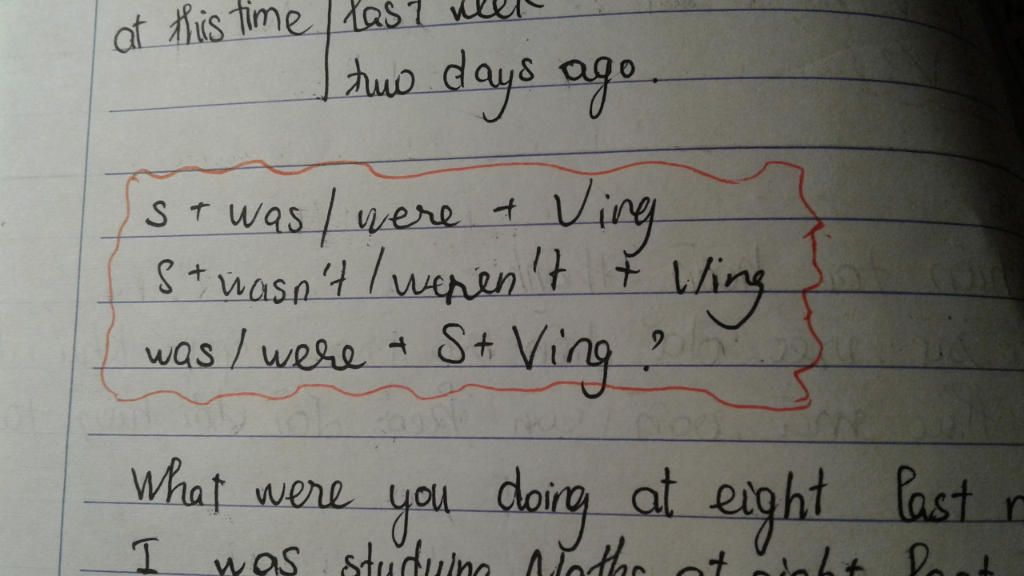 at this time last week
two days ago.
S + was / were + Ving
S + wasn't / weren't + Ving
was / were + S + Ving ?
What were you doing at eight last
I was studying Maths at eight last